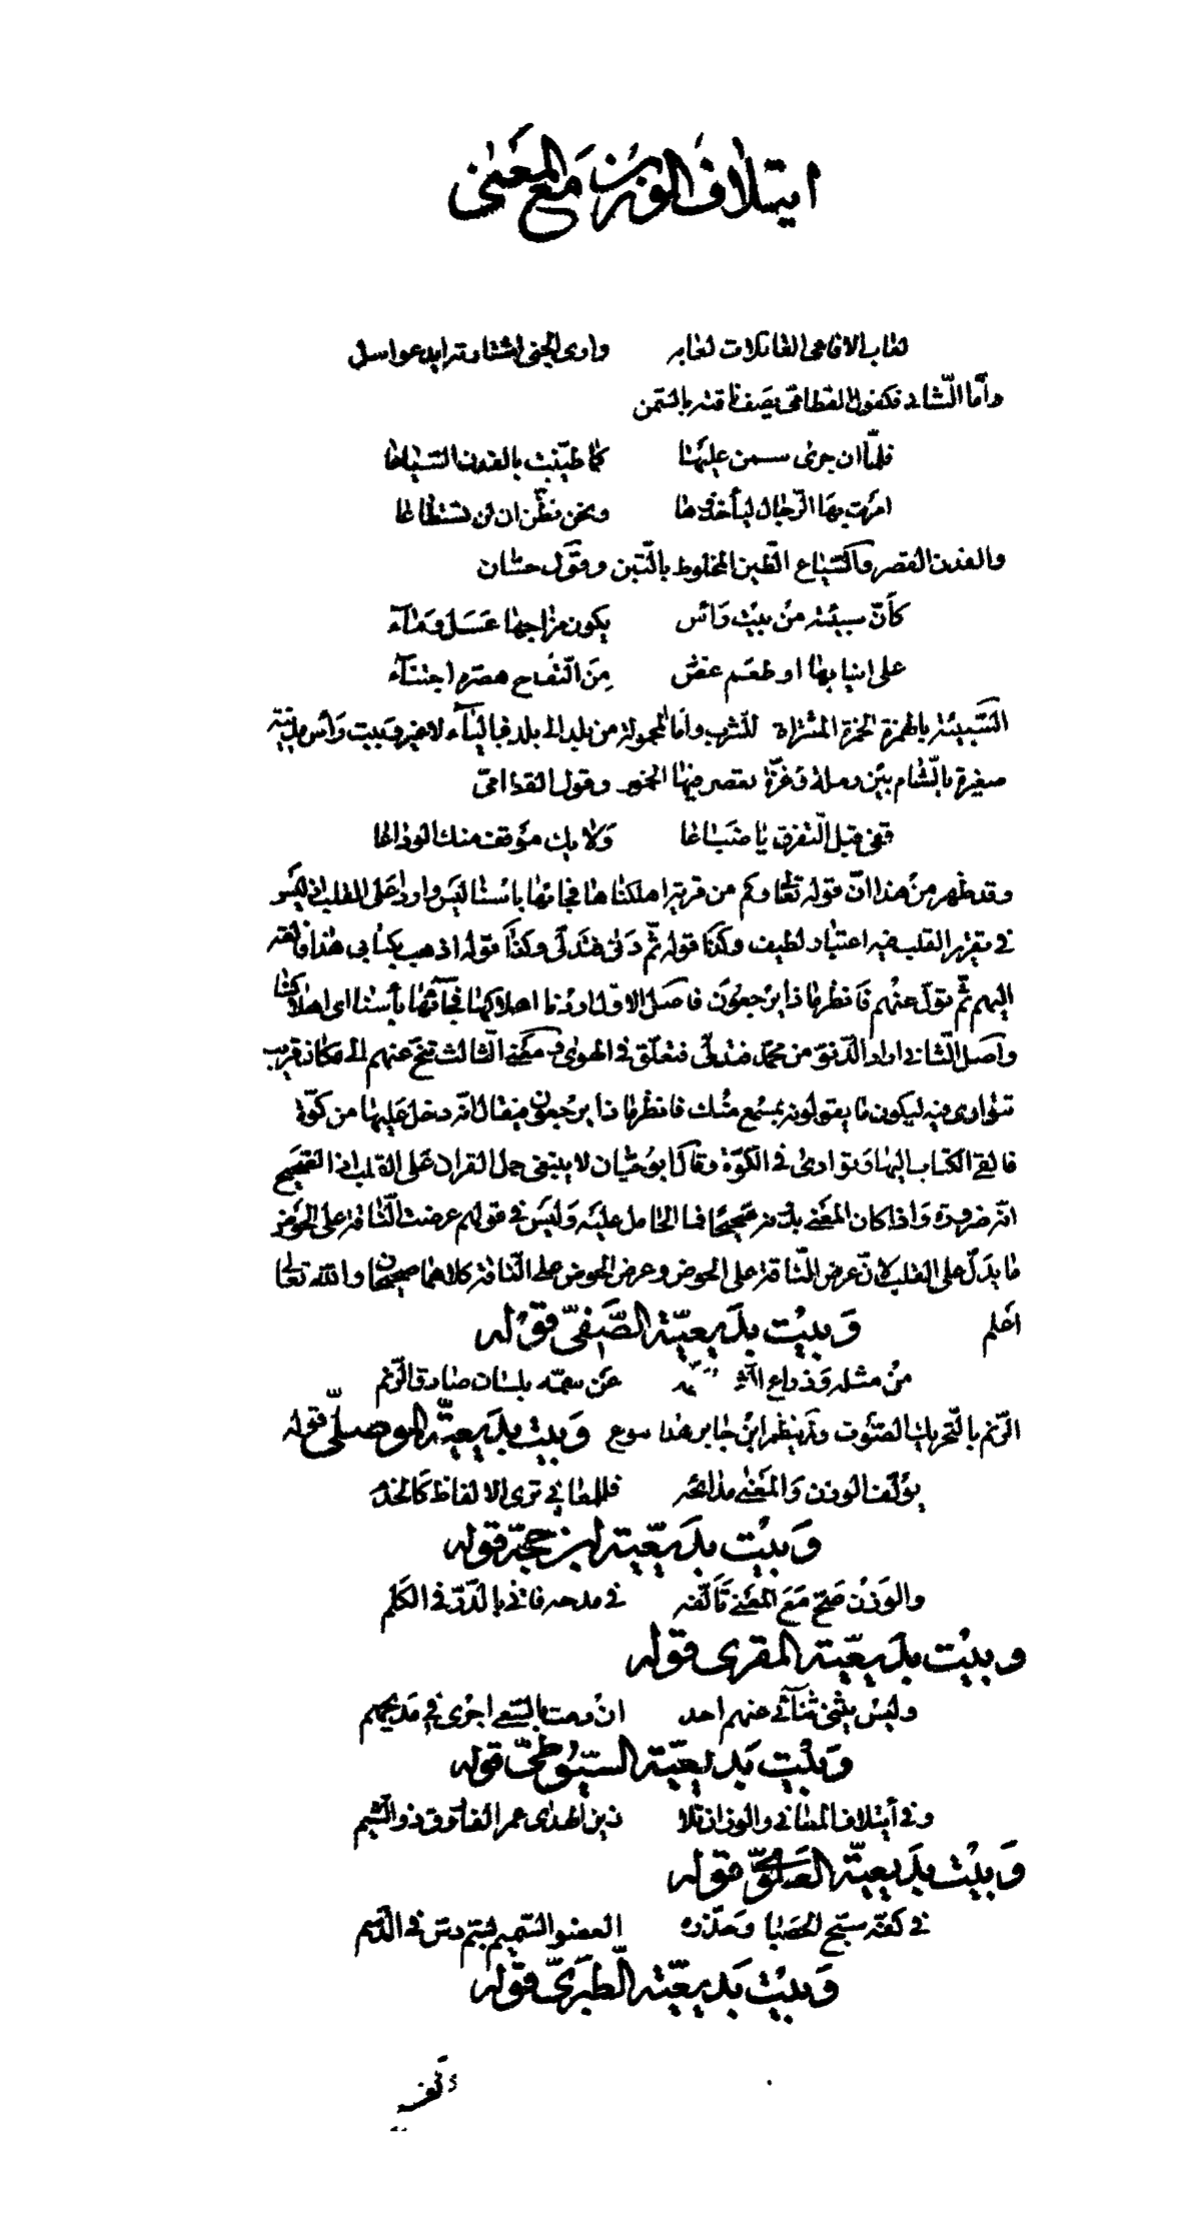 ايتلاف الوزن مع المعنى
لعاب الافاعى القاتلات لعابه وارى الجنى اشتارته ايد عواسل
وأما الثانى فكقول القطامى يصف ناقته بالسمن
فلمّا ان جرى سمن عليها كما طيّنت بالفدن السّياعا
امرت بها الرّجال ليأخذوها ونحن نظن ان لن تستطاعا
والفدن القصر والسّياع الطّين المخلوط بالتّبن وقول حسّان
كأنّ سبيئة من بيت رأس يكون مزاجها عسل وماء
على انيابها او طعم غضّ من التّفاح هصّره اجتناء
السّبيئة بالهمزة الخمرة المشتراة للشرب وأما المحمولة من بلد الى بلد فبالياء لا غير وبيت رأس مدينة
صغيرة بالشام بين رملة وغزّة تعصر فيها الخمور وقول القطامىّ
قفى قبل التفرق يا ضباعا ولا يك موقف منك الوداعا
وقد ظهر من هذا انّ قوله تعالى وكم من قرية اهلكناها فجاءها بأسنا ليس واردا على القلب اذ ليس
فى تقرير القلب فيه اعتبار لطيف وكذا قوله ثمّ دنى فتدلّى وكذا قوله اذهب بكتابى هذا فالقه
اليهم ثمّ تولّ عنهم فانظر ماذا يرجعون فاصل الاول اردنا اهلاكها فجاءها بأسنا اى اهلاكنا
واصل الثانى اراد الدّنوّ من محمّد فتدلّى فتعلّق فى الهوى ومعنى الثالث تنحّ عنهم الى مكان قريب
تتوارى فيه ليكون ما يقولونه بمسمع منك فانظر ماذا يرجعون فيقال انّه دخل عليها من كوّة
فالقى الكتاب اليها وتوارى فى الكوّة وقال ابو حيّان لا ينبغى حمل القران على القلب اذ الصّحيح
انّه ضرورة واذا كان المعنى بدونه صحيحا فما الحامل عليه وليس فى قولهم عرضت النّاقة على الحوض
ما يدلّ على القلب لانّ عرض النّاقة على الحوض وعرض الحوض على النّاقة كلاهما صحيحان والله تعالى
اعلم وبيت بديعيّة الصّفىّ قوله
من مثله وذراع عن سمّه بلسان صادق الرّنم
الرّنم بالتّحريك الصّوت ولم ينظم ابن جابر هذا وبيت بديعيّة الموصلىّ قوله
يؤلّف الوزن والمعنى مدائحه فللمعانى ترى الالفاظ كالخدم
وبيت بديعيّة ابن حجّة قوله
والوزن صحّ مع المعنى تألّفه فى مدحه فاتى بالدّرّ فى الكلم
وبيت بديعيّة المقرى قوله
وليس يثنى ثنائى عنهم احد ان رمت بالسّعى اجرى فى مديحهم
وبيت بديعيّة السّيوطىّ قوله
وفى أيتلاف المعانى والوزان تلا زين الهدى عمر الفاروق ذو الشّيم
وبيت بديعيّة العلوىّ قوله
فى كفّه سبّح الحصبا وحذّره العضو السّميم
وبيت بديعيّة الطبرىّ قوله